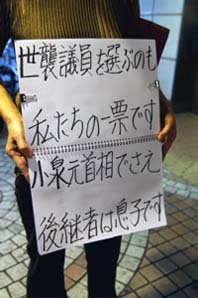 世襲議員を選ぶのも
私たちの一票です
小泉元首相でさえ
後継者は息子です